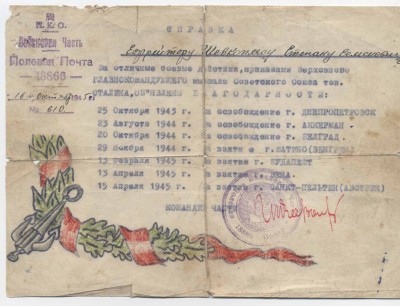 Н.К.О.
Войсковая Часть
Полевая Почта
18860
№ 610
СПРАВКА
Ефрейтору Степану
За отличные боевые действия, приказами Верховного
ГЛАВНОКОМАНДУЮЩЕГО маршала Советского Союза тов.
СТАЛИНА, ОБ'ЯВЛЕНЫ БЛАГОДАРНОСТИ:
25 Октября 1943 г. за освобождение г. ДНЕПРОПЕТРОВСК
23 Августа 1944 г. за освобождение г. АККЕРМАН
20 Октября 1944 г. за освобождение г. БЕЛГРАД
29 Ноября 1944 г. за взятие г.
13 Февраля 1945 г. за взятие г. БУДАПЕШТ
13 Апреля 1945 г. за взятие г. ВЕНА
15 Апреля 1945 г. за взятие г. САНКТ-ПЕЛЬТЕН (АВСТРИЯ)
КОМАНДИР ЧАСТИ